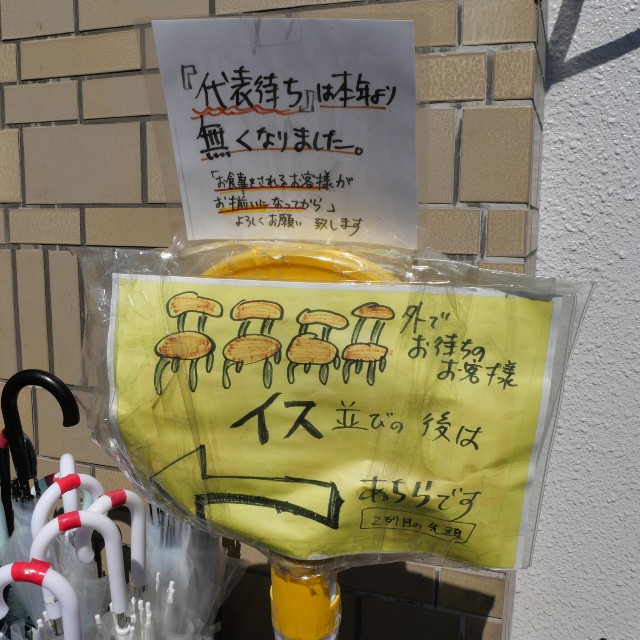 『代表待ち』は本年より
無くなりました。
「お食事をされるお客様が
お揃いになってから」
よろしくお願い致します
外で
お待ちの
お客様
イス並びの後は
あちらです